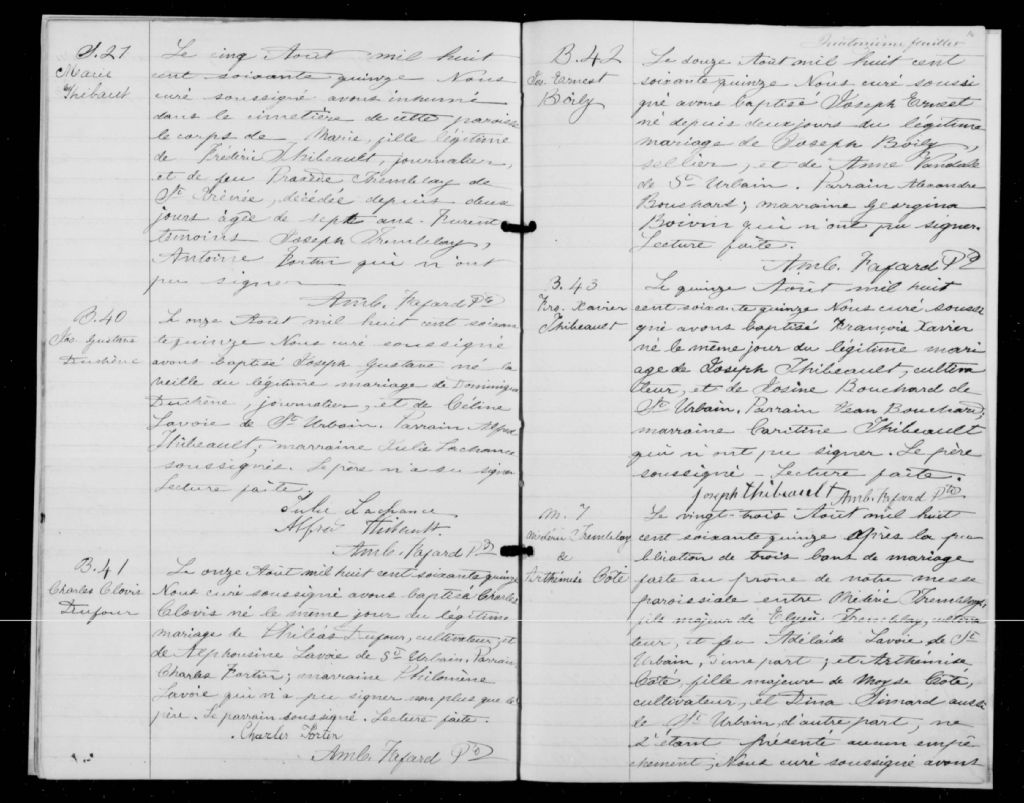 S.27
Marie
Thibault
Le cinq Août mil huit
cent soixante quinze Nous
curé soussigné avons inhumé
dans le cimetière de cette paroisse
le corps de Marie, fille légitime
de Frédéric Thibeault, journalier,
et de feu Tremblay de
St Irénée, décédée depuis deux
jours âgée de sept ans. Furent
temoins Joseph Tremblay,
Antoine Fortin qui n'ont
pu signer
Amb. Fafard Ptre
B.40
Jos. Gustave
Duchêne
Le onze Août mil huit cent soixan
te quinze Nous curé soussigné
avons baptisé Joseph Gustave né la
veille du légitime mariage de Dominique
Duchêne, journalier, et de Céline
Lavoie de St Urbain. Parrain Alfred
Thibeault, marraine Julie Lachance
soussignés. Le père n'a su signer
Lecture faite.
Julie Lachance
Alfred Thibault
Amb. Fafard Ptre
B.41
Charles Clovis
Dufour
Le onze Août mil huit cent soixante quinze
Nous curé soussigné avons baptisé Charles
Clovis né le même jour du légitime
mariage de Philéas Dufour, cultivateur, et
de Alphonsine Lavoie de St Urbain. Parrain
Charles Fortier; marraine Philomène
Lavoie qui n'a pu signer non plus que le
père. Le parrain soussigné. Lecture faite.
Charles Fortier
Amb. Fafard Ptre
feuillet
B.42
Jos. Ernest
Boily
Le douze Août mil huit cent
soixante quinze Nous curé soussi
gné avons baptisé Joseph Ernest
né depuis deux jours du légitime
mariage de Joseph Boily,
sellier, et de Anne Vandal
de St Urbain. Parrain Alexandre
Bouchard; marraine Georgina
Boivin qui n'ont pu signer.
Lecture faite.
Amb. Fafard Ptre
B.43
Frs. Xavier
Thibeault
Le quinze Août mil huit
cent soixante quinze Nous curé soussi
gné avons baptisé François Xavier
né le même jour du légitime mari
age de Joseph Thibeault, cultiva
teur, et de Josine Bouchard de
St Urbain. Parrain Jean Bouchard;
marraine Caritine Thibeault
qui n'ont pu signer. Le père
soussigné - Lecture faite.
Joseph Thibeault Amb. Fafard Ptre
M. 7
Tremblay
&
Arthémise Côté
Le vingt-trois Août mil huit
cent soixante quinze Après la pu
blication de trois bans de mariage
faite au prône de notre messe
paroissiale entre Tremblay,
fils majeur de Elysée Tremblay, cultiva
teur, et feu Adélaide Lavoie de St
Urbain, d'une part; et Arthémise
Côté, fille majeure de Moyse Côté,
cultivateur, et Dina Simard aussi
de St Urbain, d'autre part, ne
s'étant présenté aucun empê
chement, Nous curé soussigné avons